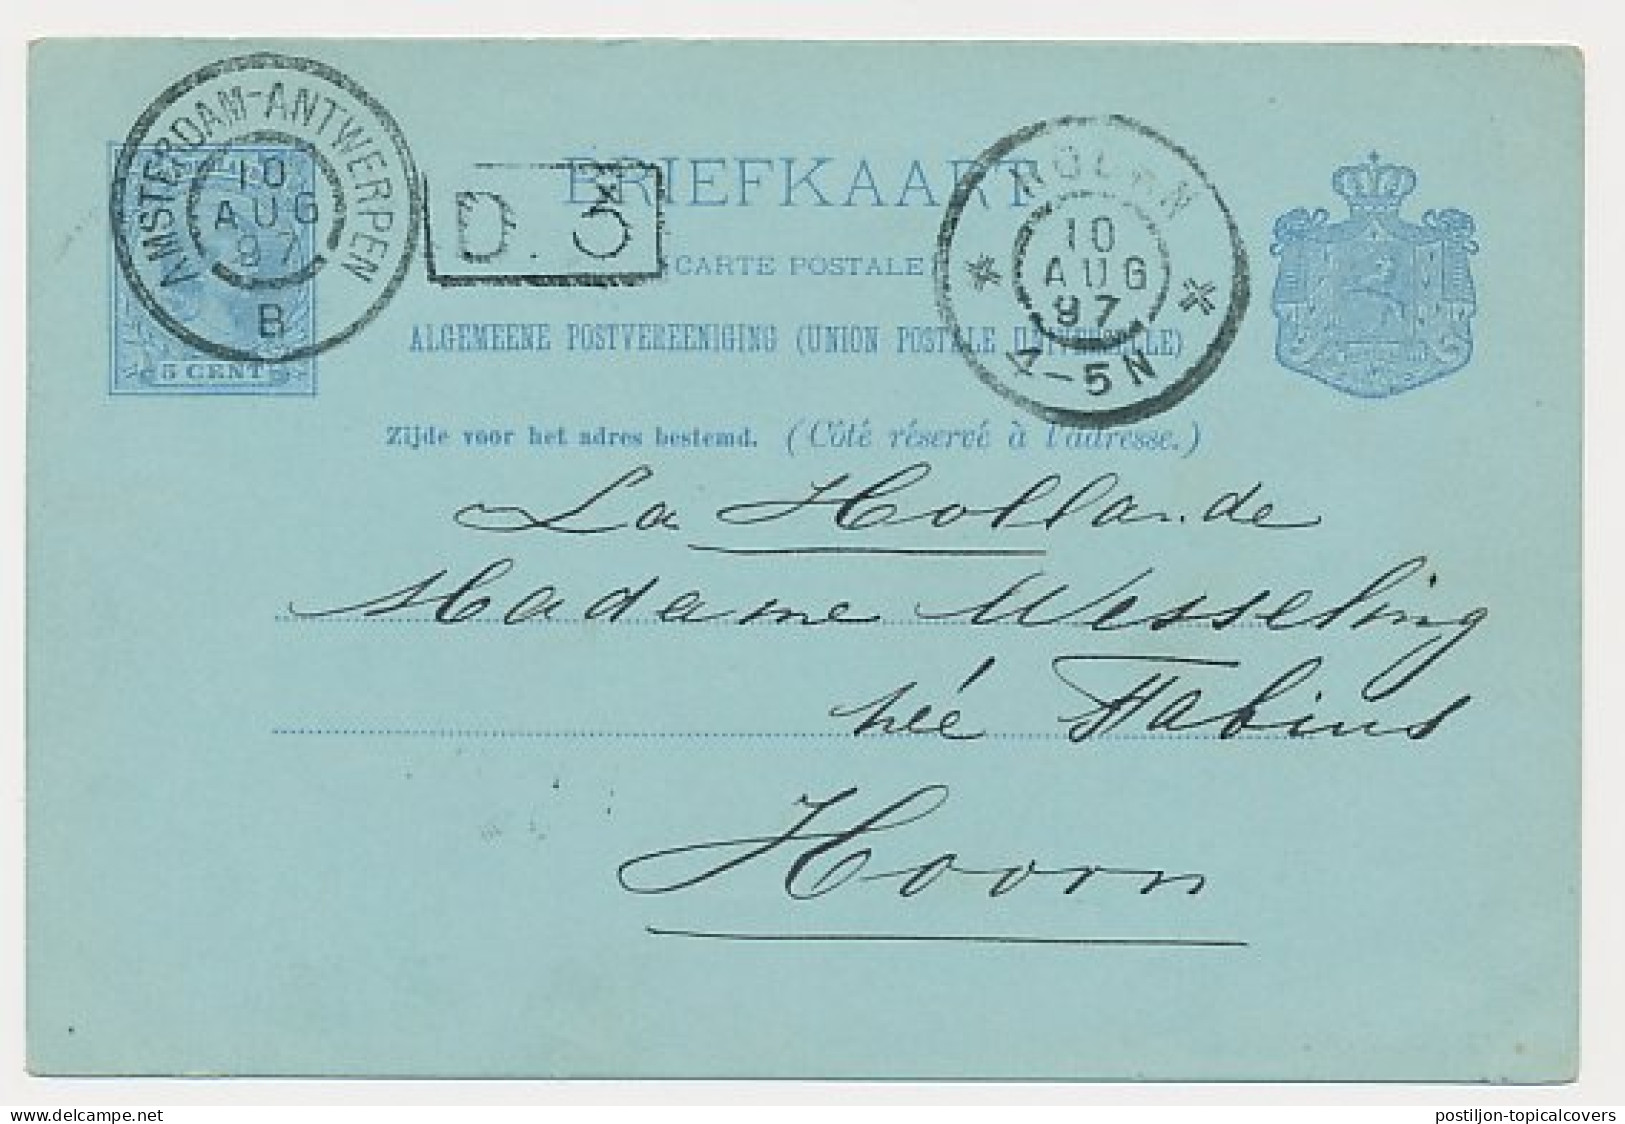 AMSTERDAM-ANTWERPEN
10
AUG
97
B
D. 3
5 CENT
BRIEFKAART
CARTE POSTALE
ALGEMEENE POSTVEREENIGING (UNION POSTALE UNIVERSELLE)
Zijde voor het adres bestemd. (Côté réservé à l'adresse.)
10
AUG
97
4-5N
La Hollande
Madame Wesseling
née Fabius
Hoorn
postiljon-topicalcovers